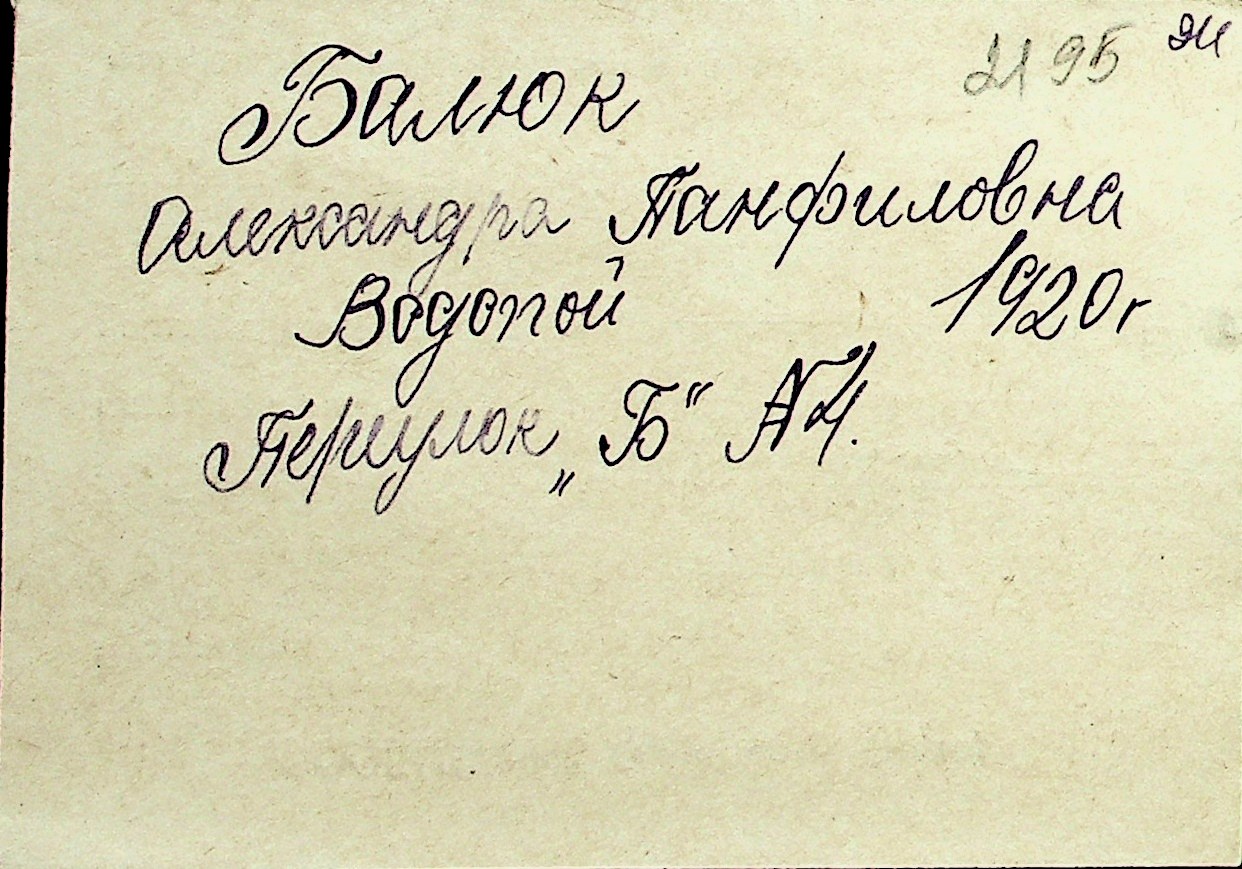 2195
Балюк
Александра Панфиловна
Водопой 1920г
Периулок „Б“ №4.